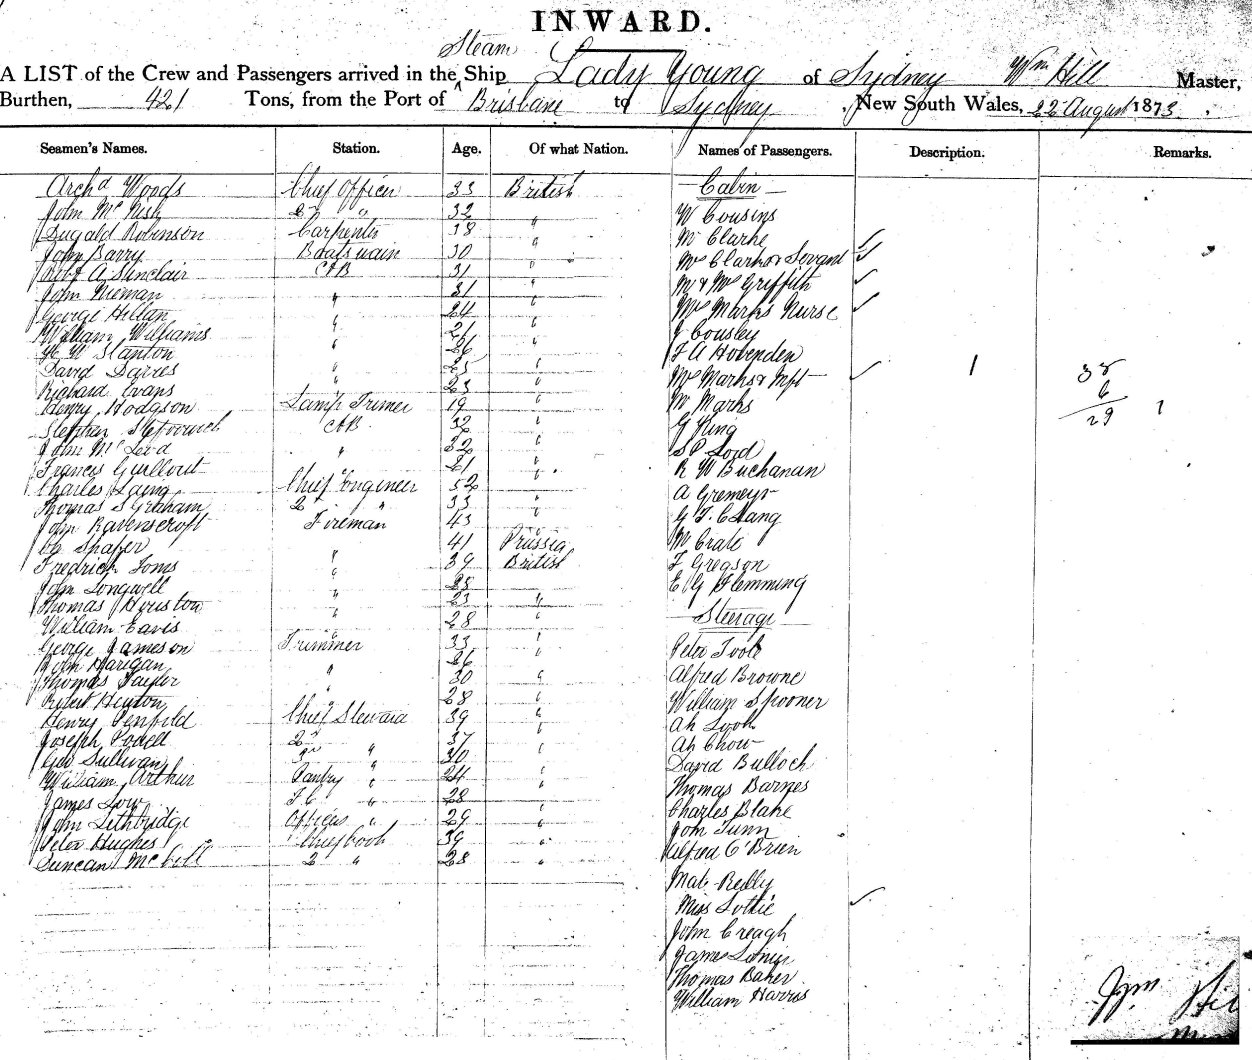 INWARD.
Steam
A LIST of the Crew and Passengers arrived in the Ship Lady Young of Sydney Wm Hill Master,
Burthen, 421 Tons, from the Port of Brisbane to Sydney, New South Wales, 22 August 1873.
Seamen's Names. Station. Age. Of what Nation. Names of Passengers. Description. Remarks.
Archd Woods Chief Officer 33 British
John McNish 2nd " 32 "
Dugald Robinson Carpenter 38 "
John Barry Boatswain 30 "
Robt A Sinclair AB 31 "
John Nieman " 31 "
George Hillan " 24 "
William Williams " 21 "
W Stanton " 26 "
David Davies " 25 "
Richard Evans " 23 "
Henry Hodgson Lamp Trimer 19 "
Stephen AB 32 "
John McLeod " 32 "
Francis Guillout 21 "
Charles Laing Chief Engineer 52 "
Thomas S Graham 2nd " 33 "
John Ravenscroft Fireman 43 "
Shaper 41 Prussia
Fredrick Toms " 39 British
John Longwell " 28
Thomas Houston " 23 "
William Eavis " 28 "
George Jameson Trimmer 33 "
John Harigan 26 "
Thomas Taylor " 30 "
Robert Hinton " 28 "
Henry Penfold Chief Steward 39 "
Joseph Powell 2nd 37 "
Geo Sullivan 3rd " 30 "
William Arthur Pantry " 24 "
James Low F C " 28 "
John Lethbridge Officers " 29 "
Peter Hughes Chief Cook 39 "
Duncan 2 " 28 "
Cabin
W Cousins
Mr Clarke
Mrs Clarke & Servant
Mr & Mrs Griffith
Mrs Marks Nurse
J Cousley
F A Hovenden
Mrs Marks & Inft 1
Mr Marks
G King
S P Lord
R W Buchanan
A Gremeyr
G F Clang
Mr Crate
F Gregson
E G Flemming
Steerage
Peter Toole
Alfred Browne
William Spooner
Ah Look
Ah Chow
David Bulloch
Thomas Barnes
Charles Blake
Tunn
Alfred O'Brien
Mat Reilly
Miss Lottie
John Creagh
James
Thomas Baker
William Harris
35
6
29
Wm Hil